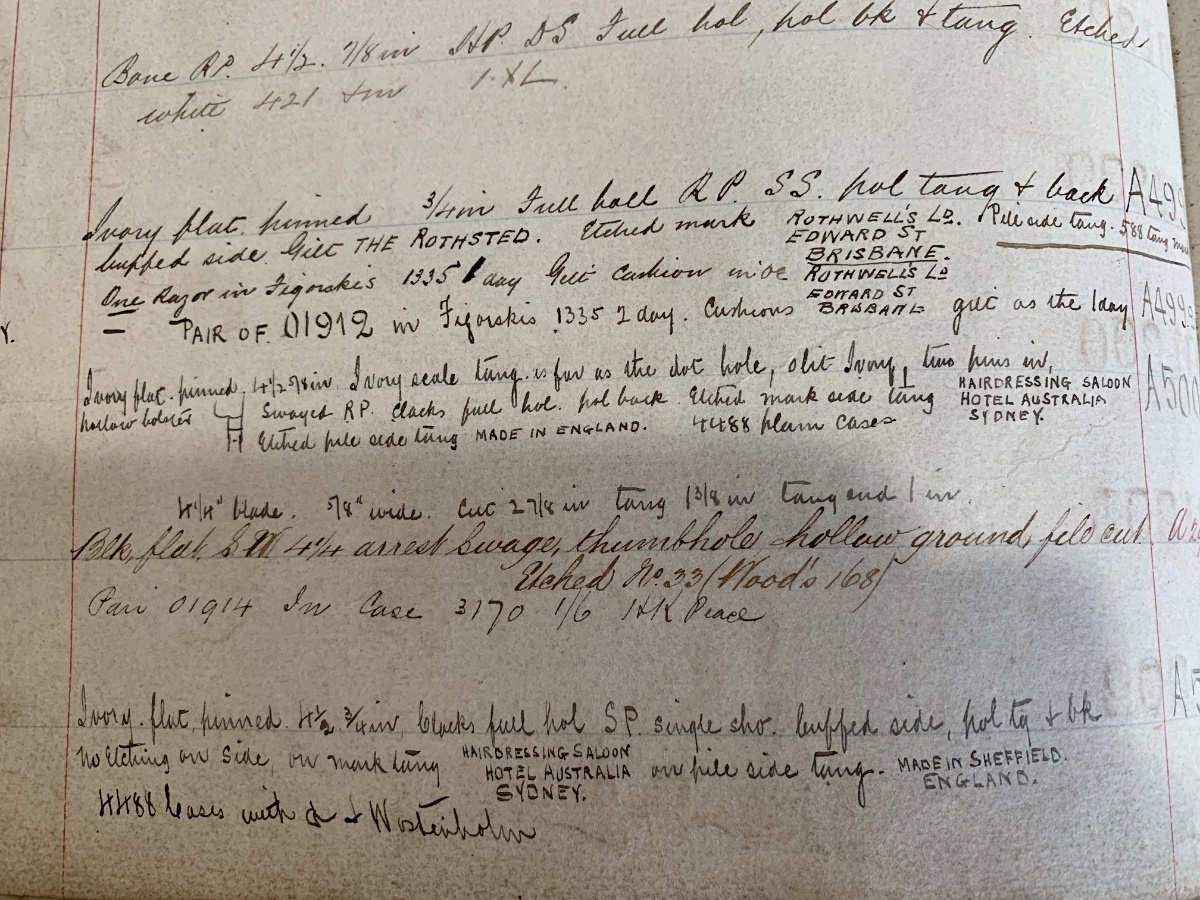 Bone RP. 4½. 7/8 in HP DS Full hol, pol bk & tang. Etched
white 421 1·XL
Ivory flat. pinned 3/4 in Full holl R P. SS. pol tang & back A499
buffed side Gilt THE ROTHSTED. Etched mark ROTHWELL'S LD. Pile side tang. 588 tang
EDWARD ST
BRISBANE.
One Razor in Figorskis 1335 1 day Gilt Cushion ROTHWELL'S LD
EDWARD ST
BRISBANE
= PAIR OF. 01912 in Figorskis 1335 2 day. Cushions gilt as the 1 day A499
Ivory flat. pinned. 4½ 7/8 in Ivory scale tang as far as the dot hole, slit Ivory, two pins in, A50
hollow bolster Swayed RP. Clacks full hol. pol back. Etched mark side tang HAIRDRESSING SALOON
HOTEL AUSTRALIA
SYDNEY.
Etched pile side tang MADE IN ENGLAND. 4488 plain cases
4¼" blade. 5/8" wide. Cut 2 7/8 in tang 1 3/8 in tang end 1 in
Blk, flat, S W 4¼ arrest Swage, thumbhole hollow ground, file cut
Etched No. 33 (Wood's 168)
Pair 01914 In Case 3170 1/6 HK Peace
Ivory. flat, pinned. 4½ 3/4 in, Clacks full hol SP. single sho. buffed side, pol tg & bk A5
no Etching on Side, on mark tang HAIRDRESSING SALOON
HOTEL AUSTRALIA
SYDNEY.
on pile side tang. MADE IN SHEFFIELD.
ENGLAND.
4488 Cases with & Wostenholm